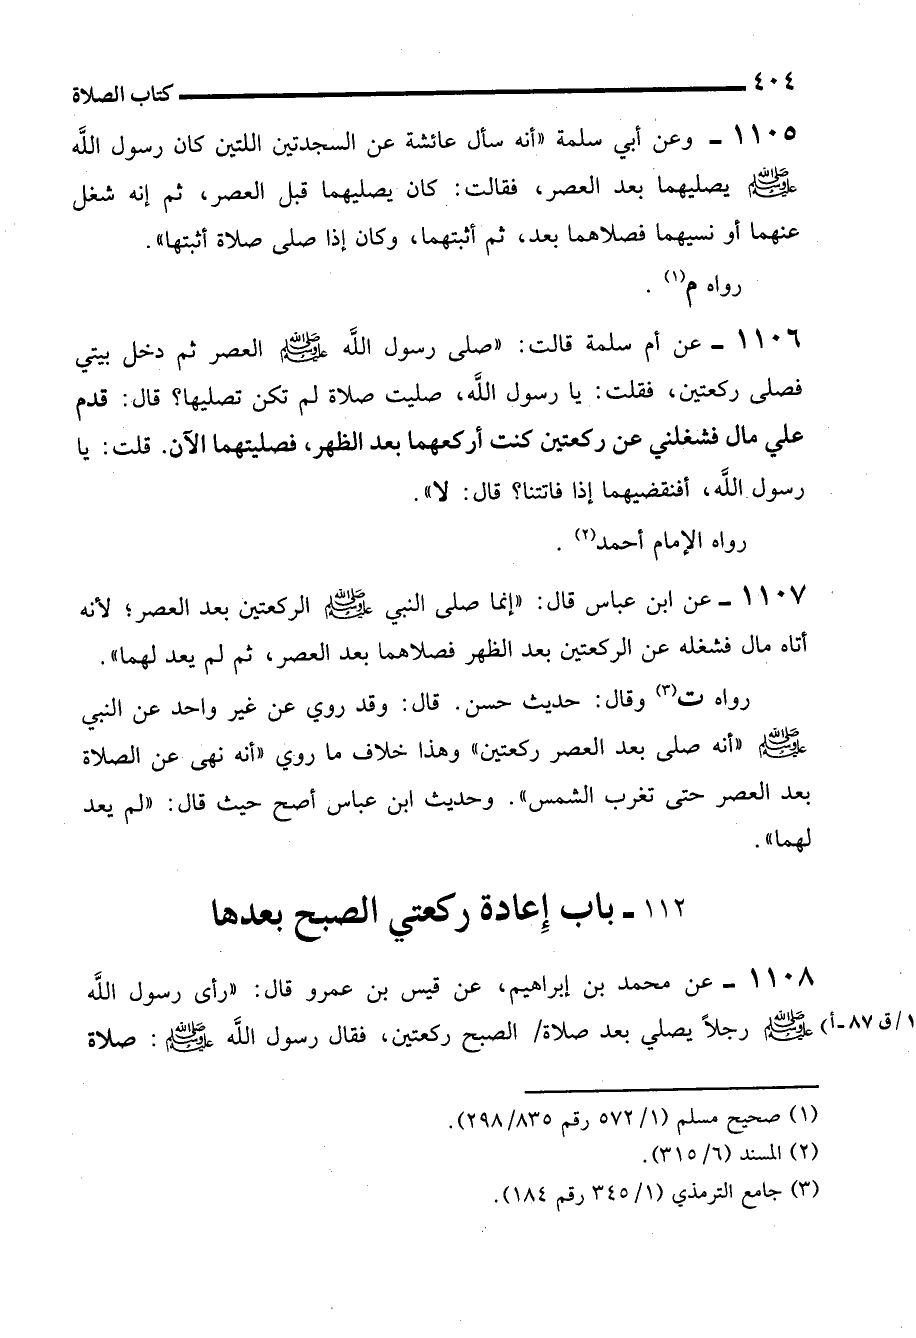 ٤٠٤ كتاب الصلاة
١١٠٥ ـ وعن أبي سلمة «أنه سأل عائشة عن السجدتين اللتين كان رسول اللَّه
ﷺ يصليهما بعد العصر، فقالت: كان يصليهما قبل العصر، ثم إنه شغل
عنهما أو نسيهما فصلاهما بعد، ثم أثبتهما، وكان إذا صلى صلاة أثبتها».
رواه م(١) .
١١٠٦ ـ عن أم سلمة قالت: «صلى رسول اللَّه ﷺ العصر ثم دخل بيتي
فصلى ركعتين، فقلت: يا رسول اللَّه، صليت صلاة لم تكن تصليها؟ قال: قدم
علي مال فشغلني عن ركعتين كنت أركعهما بعد الظهر، فصليتهما الآن. قلت: يا
رسول اللَّه، أفنقضيهما إذا فاتتنا؟ قال: لا».
رواه الإمام أحمد(٢) .
١١٠٧ ـ عن ابن عباس قال: «إنما صلى النبي ﷺ الركعتين بعد العصر؛ لأنه
أتاه مال فشغله عن الركعتين بعد الظهر فصلاهما بعد العصر، ثم لم يعد لهما».
رواه ت(٣) وقال: حديث حسن. قال: وقد روي عن غير واحد عن النبي
ﷺ «أنه صلى بعد العصر ركعتين» وهذا خلاف ما روي «أنه نهى عن الصلاة
بعد العصر حتى تغرب الشمس». وحديث ابن عباس أصح حيث قال: «لم يعد
لهما».
١١٢ ـ باب إِعادة ركعتي الصبح بعدها
١١٠٨ ـ عن محمد بن إبراهيم، عن قيس بن عمرو قال: «رأى رسول اللَّه
ﷺ رجلاً يصلي بعد صلاة/ الصبح ركعتين، فقال رسول اللَّه ﷺ: صلاة
١/ق ٨٧-أ)
(١) صحيح مسلم (١/ ٥٧٢ رقم ٨٣٥/ ٢٩٨).
(٢) المسند (٦/ ٣١٥).
(٣) جامع الترمذي (١/ ٣٤٥ رقم ١٨٤).